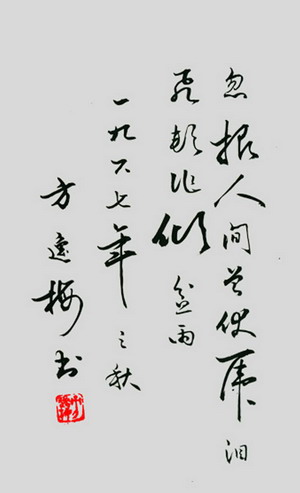 忽报人间曾伏虎泪
飞顿作倾盆雨
一九六七年之秋
方逸梅书